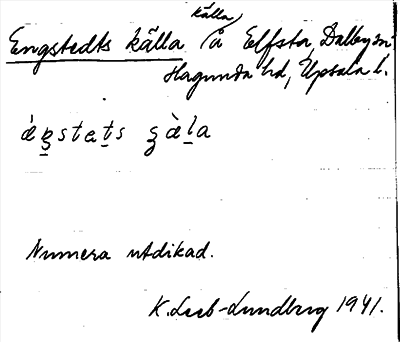 källa
Engstedts källa å Elfsta, Dalby sn
Hagunda hd, Upsala l.
Numera utdikad.
K. Leeb-Lundberg 1941.